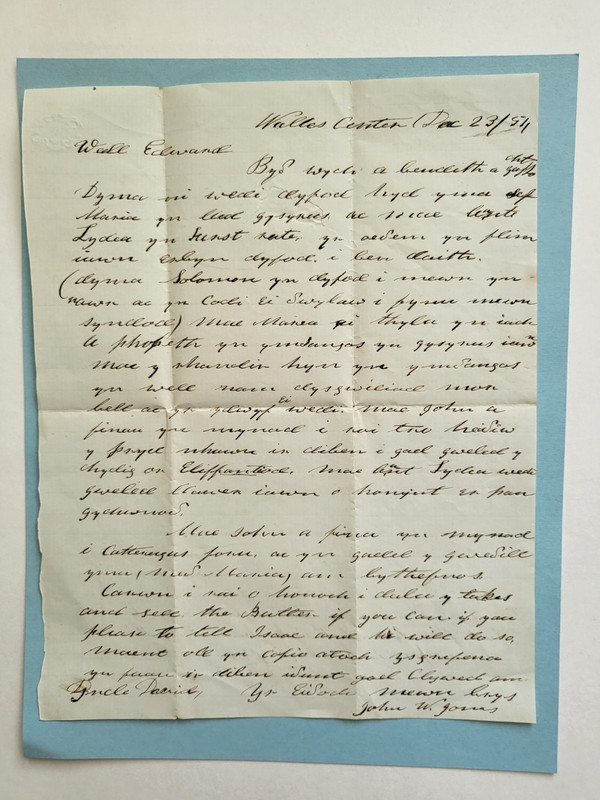 Wales Center Dec 23/54
Well Edward
Byd wych a bendith a
Dyma ni wedi dyfod hyd yma
Maria yn lled gysyrus ac mae
Lydea yn furst rate, yr oedem yn flin
iawn erbyn dyfod i ben daith.
(dyma Solomon yn dyfod i mewn yn
awr ac yn Codi Ei dwylaw i fynu mewn
syndod) Mae Maria ei thylu yn iach
a phopeth yn ymdangos yn gysyrus iawn
mae y rhandir hyn yn ymdangos
yn well nam dysgwiliad mor
bell ac yr ydwyf Ei wedi. Mae John a
finau yn mynad i roi tro hediw
y pryd nhawn ir diben i gael gweled y
chydig or Eliffantod, mae Lydia wedi
gweled llawer iawn o honynt er pan
gychwnod.
Mae John a fina yn mynad
i Catteraugus foru, ac yn gadal y gweddill
yma, (nid Maria) am bythefnos.
Carwn i rai o honoch i dalu y takes
and sell the Butter if you can if you
please to tell Isaac and he will do so,
maent oll yn cofio atoch ysgrifena
yn fuan ir diben idant gael Clywed am
Uncle David, Yr Eidoch mewn brys
John W. Jones